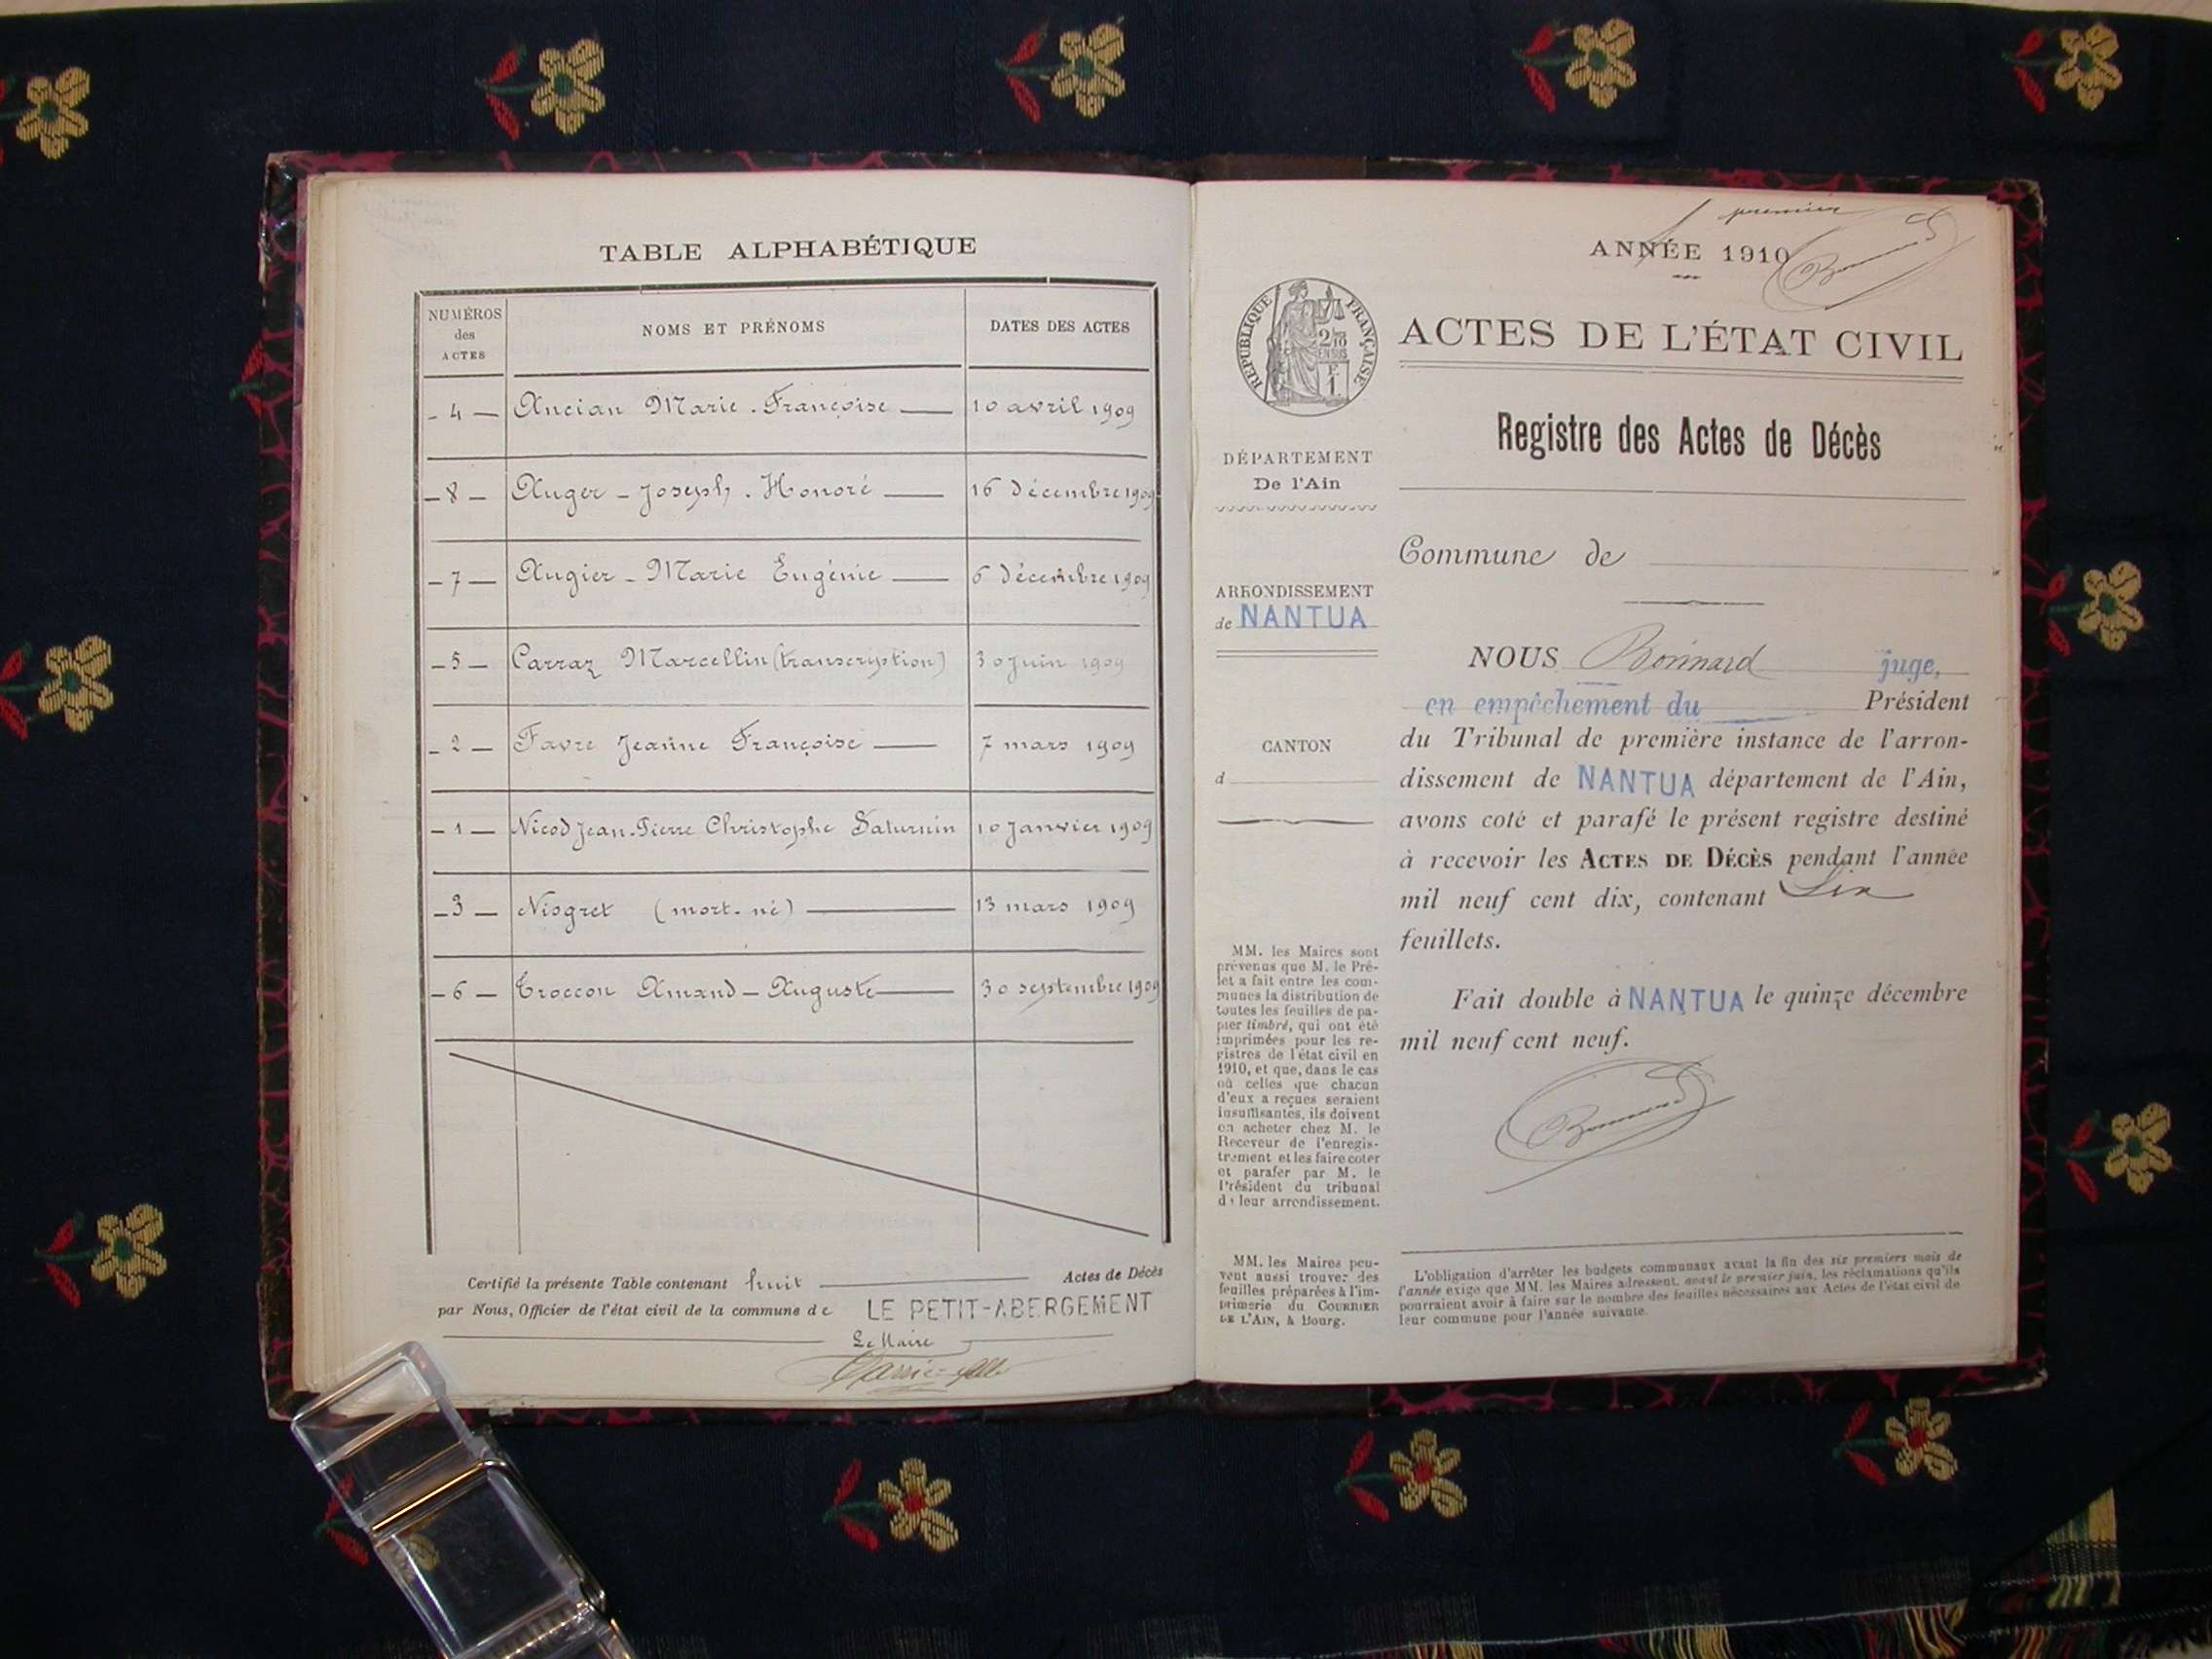 TABLE ALPHABÉTIQUE
NUMÉROS
des
ACTES
NOMS ET PRÉNOMS
DATES DES ACTES
- 4 — Ancian Marie-Françoise — 10 avril 1909
- 8 — Auger - Joseph-Honoré — 16 décembre 1909
- 7 — Augier - Marie Eugénie — 6 décembre 1909
- 5 — Carraz Marcellin (transcription) 30 juin 1909
- 2 — Favre Jeanne Françoise — 7 mars 1909
- 1 — Nicod Jean-Pierre Christophe Saturnin 10 Janvier 1909
- 3 — Niogret (mort-né) — 13 mars 1909
- 6 — Troccon Amand - Auguste — 30 septembre 1909
Certifié la présente Table contenant huit Actes de Décès
par Nous, Officier de l'état civil de la commune de LE PETIT-ABERGEMENT
Le Maire
premier
ANNÉE 1910
RÉPUBLIQUE FRANÇAISE
2/10
EN SUS
F.
1
ACTES DE L'ÉTAT CIVIL
Registre des Actes de Décès
DÉPARTEMENT
De l'Ain
ARRONDISSEMENT
de NANTUA
CANTON
d
MM. les Maires sont
prévenus que M. le Pré-
fet a fait entre les com-
munes la distribution de
toutes les feuilles de pa-
pier timbré, qui ont été
imprimées pour les re-
gistres de l'état civil en
1910, et que, dans le cas
où celles que chacun
d'eux a reçues seraient
insuffisantes, ils doivent
en acheter chez M. le
Receveur de l'enregis-
trement et les faire coter
et parafer par M. le
Président du tribunal
de leur arrondissement.
MM. les Maires peu-
vent aussi trouver des
feuilles préparées à l'im-
primerie du COURRIER
DE L'AIN, à Bourg.
Commune de
NOUS Bonnard juge,
en empêchement du Président
du Tribunal de première instance de l'arron-
dissement de NANTUA département de l'Ain,
avons coté et parafé le présent registre destiné
à recevoir les ACTES DE DÉCÈS pendant l'année
mil neuf cent dix, contenant Six
feuillets.
Fait double à NANTUA le quinze décembre
mil neuf cent neuf.
L'obligation d'arrêter les budgets communaux avant la fin des six premiers mois de
l'année exige que MM. les Maires adressent, avant le premier juin, les réclamations qu'ils
pourraient avoir à faire sur le nombre des feuilles nécessaires aux Actes de l'état civil de
leur commune pour l'année suivante.